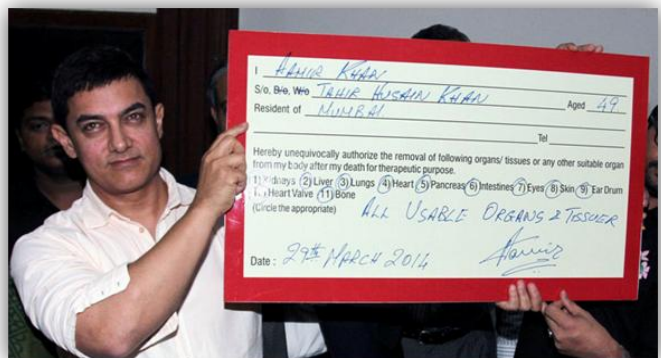 I AAMIR KHAN
S/o, D/o, W/o TAHIR HUSAIN KHAN Aged 49
Resident of MUMBAI
Tel
Hereby unequivocally authorize the removal of following organs/ tissues or any other suitable organ
from my body after my death for therapeutic purpose.
1) Kidneys 2) Liver 3) Lungs 4) Heart 5) Pancreas 6) Intestines 7) Eyes 8) Skin 9) Ear Drum
Heart Valve 11) Bone
(Circle the appropriate) ALL USABLE ORGANS & TISSUES
Date : 29th MARCH 2014 Aamir